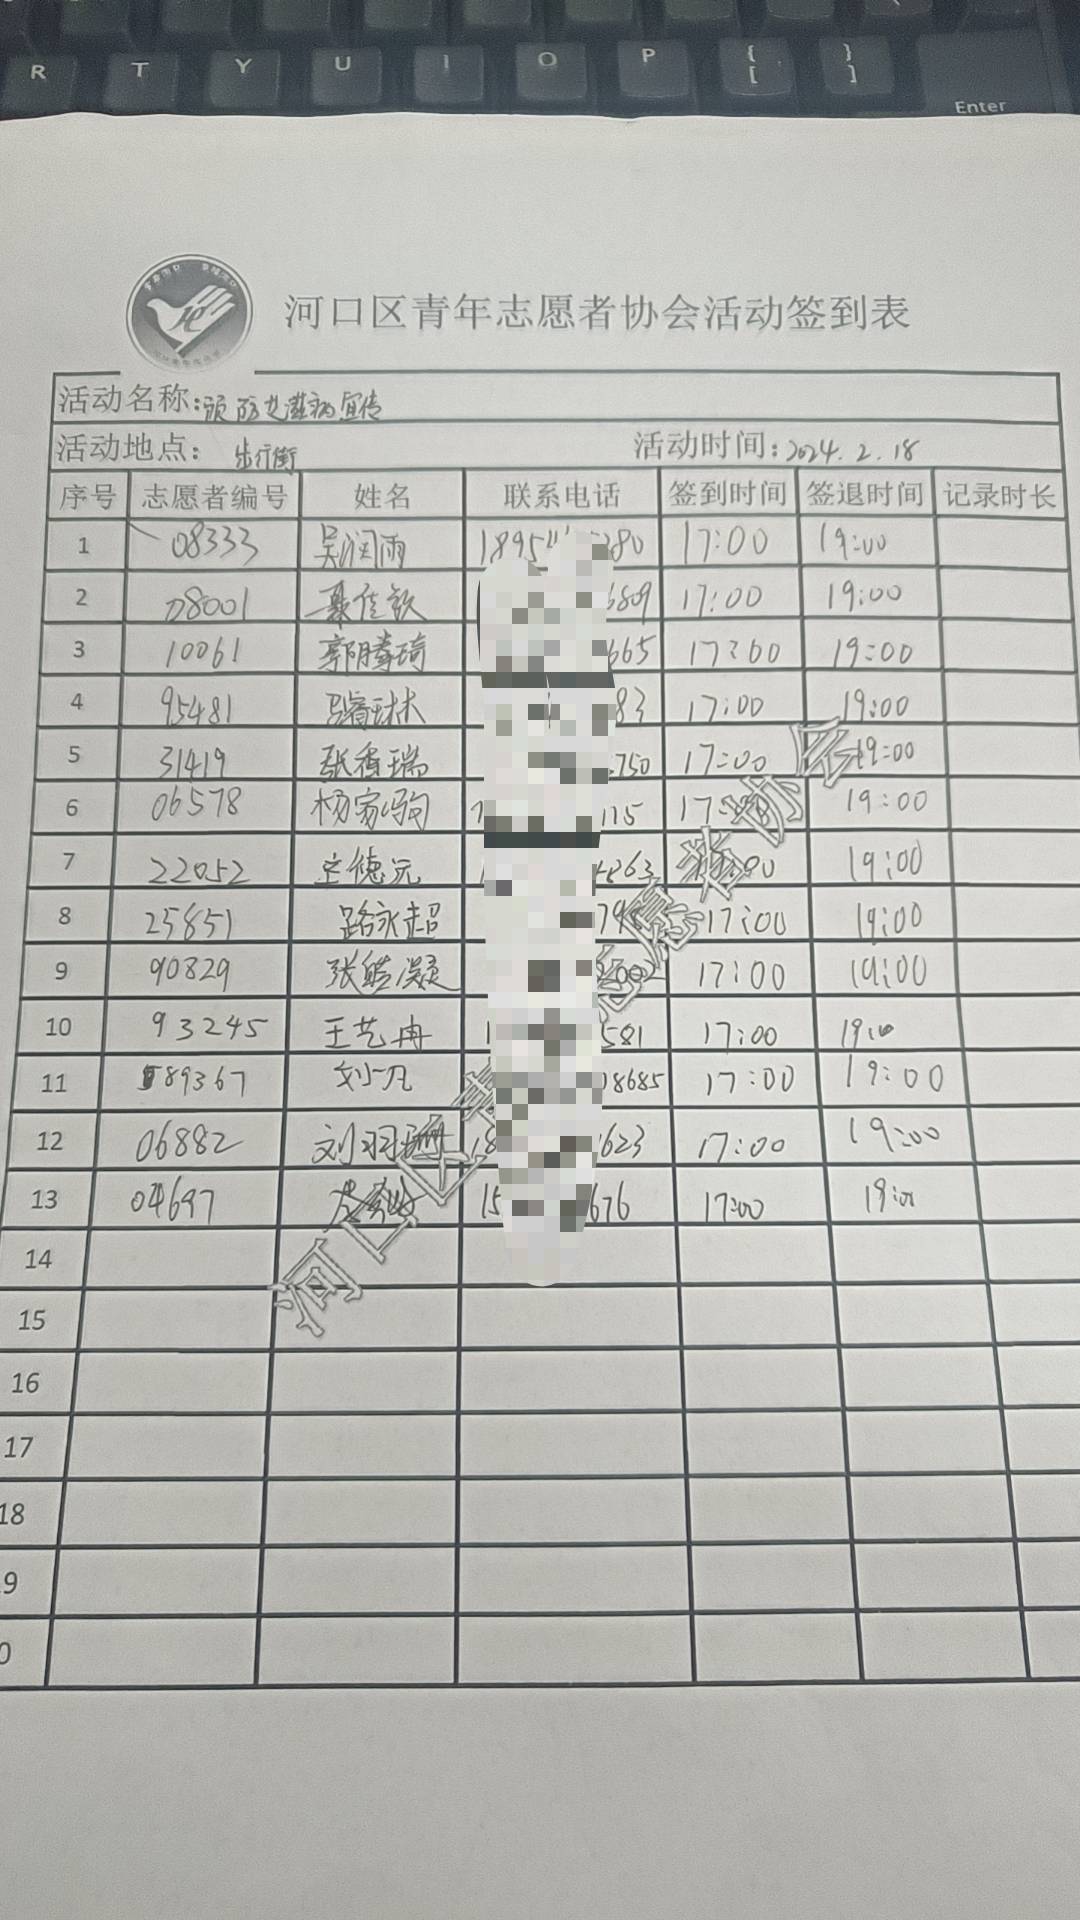 R T Y U I O P { [ } ]
Enter
河口区青年志愿者协会活动签到表
活动名称:预防艾滋病宣传
活动地点: 步行街 活动时间:2024.2.18
序号 志愿者编号 姓名 联系电话 签到时间 签退时间 记录时长
1 08333 吴润雨 17:00 19:00
2 08001 聂佳欣 6809 17:00 19:00
3 10061 郭腾琦 665 17:00 19:00
4 95481 83 17:00 19:00
5 31419 750 17:00 19:00
6 06578 杨家驹 115 19:00
7 22052 德元 863 19:00
8 25851 路永超 17:00 19:00
9 90829 张皓凝 17:00 19:00
10 93245 王艺冉 581 17:00
11 89367 刘一凡 18685 17:00 19:00
12 06882 刘羽珊 18 1623 17:00 19:00
13 04697 15 676 17:00 19:00
14
15
16
17
18
河口区青 志愿者协会